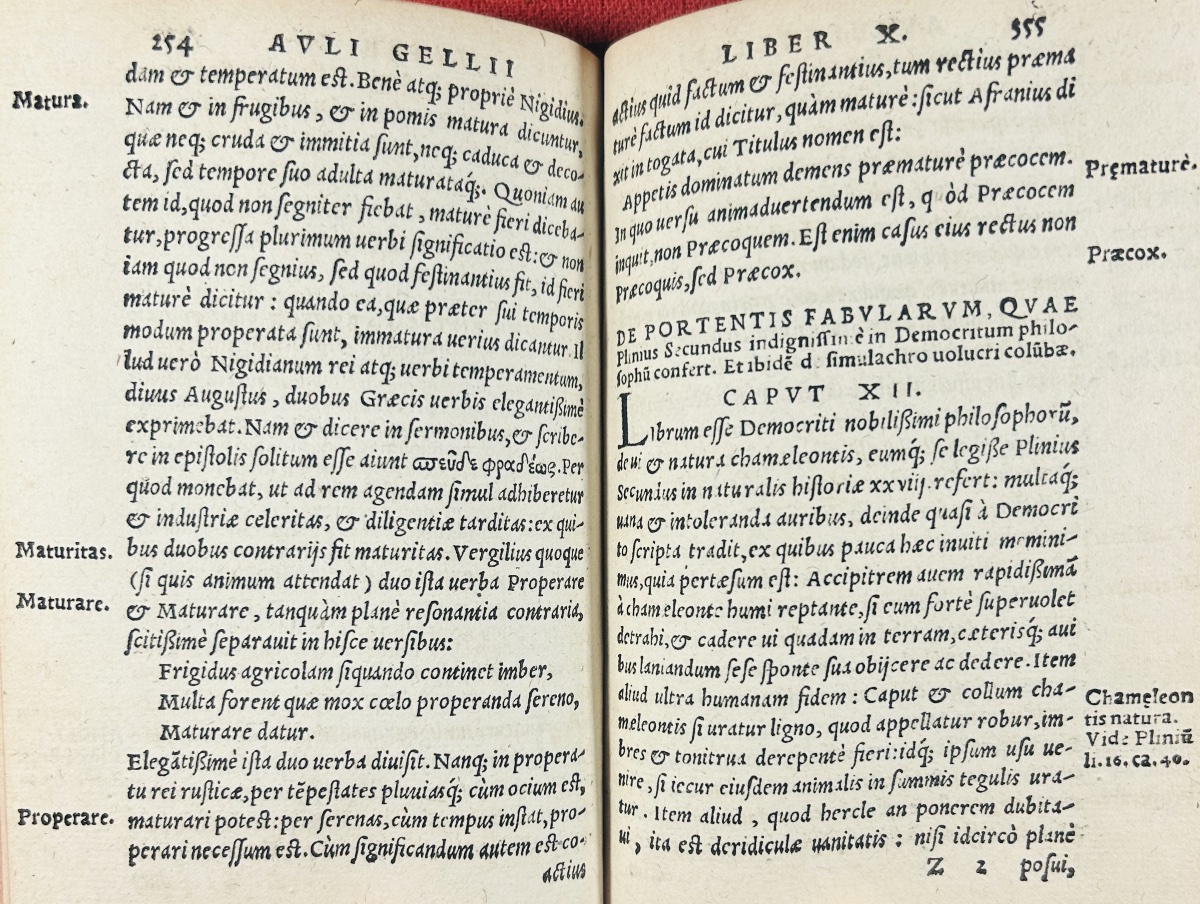 254 AVLI GELLII
dam & temperatum est. Benè atq; propriè Nigidius.
Matura.
Nam & in frugibus, & in pomis matura dicuntur,
quæ neq; cruda & immitia sunt, neq; caduca & deco-
cta, sed tempore suo adulta maturataq́;. Quoniam au
tem id, quod non segniter fiebat, maturè fieri diceba-
tur, progressa plurimum uerbi significatio est: & non
iam quod non segnius, sed quod festinantius fit, id fieri
maturè dicitur: quando ea, quæ præter sui temporis
modum properata sunt, immatura uerius dicantur. Il
lud uerò Nigidianum rei atq; uerbi temperamentum,
diuus Augustus, duobus Græcis uerbis elegantißimè
exprimebat. Nam & dicere in sermonibus, & scribe-
re in epistolis solitum esse aiunt ϖεῦδε φραδέως. Per
quod monebat, ut ad rem agendam simul adhiberetur
& industriæ celeritas, & diligentiæ tarditas: ex qui-
Maturitas.
bus duobus contrarijs fit maturitas. Vergilius quoque
(si quis animum attendat) duo ista uerba Properare
Maturare.
& Maturare, tanquàm planè resonantia contraria,
scitißimè separauit in hisce uersibus:
Frigidus agricolam siquando continet imber,
Multa forent quæ mox cœlo properanda sereno,
Maturare datur.
Elegãtißimè ista duo uerba diuisit. Nanq; in propera-
tu rei rusticæ, per tẽpestates pluuiasq́; cùm ocium est,
Properare.
maturari potest: per serenas, cùm tempus instat, pro-
perari necessum est. Cùm significandum autem est co-
actius
LIBER X. 355
actius quid factum & festinantius, tum rectius præma
turè factum id dicitur, quàm maturè: sicut Afranius di
xit in togata, cui Titulus nomen est:
Appetis dominatum demens præmaturè præcocem.
Pręmaturè.
In quo uersu animaduertendum est, quòd Præcocem
inquit, non Præcoquem. Est enim casus eius rectus non
Præcox.
Præcoquis, sed Præcox.
DE PORTENTIS FABVLARVM, QVAE
Plinius Secundus indignissimè in Democritum philo-
sophũ confert. Et ibidẽ d. simulachro uolucri colũbæ.
CAPVT XII.
Librum esse Democriti nobilißimi philosophorũ,
de ui & natura chamæleontis, eumq́; se legisse Plinius
Secundus in naturalis historiæ xxviij. refert: multaq́;
uana & intoleranda auribus, deinde quasi à Democri
to scripta tradit, ex quibus pauca hæc inuiti memini-
mus, quia pertæsum est: Accipitrem auem rapidißimã
à chameleonte humi reptante, si eum fortè superuolet
detrahi, & cadere ui quadam in terram, cæterisq́; aui
bus laniandum sese sponte sua obijcere ac dedere. Item
aliud ultra humanam fidem: Caput & collum cha-
Chamęleon
tis natura.
Vide Pliniũ
li. 16. ca. 40.
meleontis si uratur ligno, quod appellatur robur, im-
bres & tonitrua derepentè fieri: idq́; ipsum usu ue-
nire, si iecur eiusdem animalis in summis tegulis ura-
tur. Item aliud, quod hercle an ponerem dubita-
ui, ita est deridiculæ uanitatis: nisi idcircò planè
Z 2 posui,